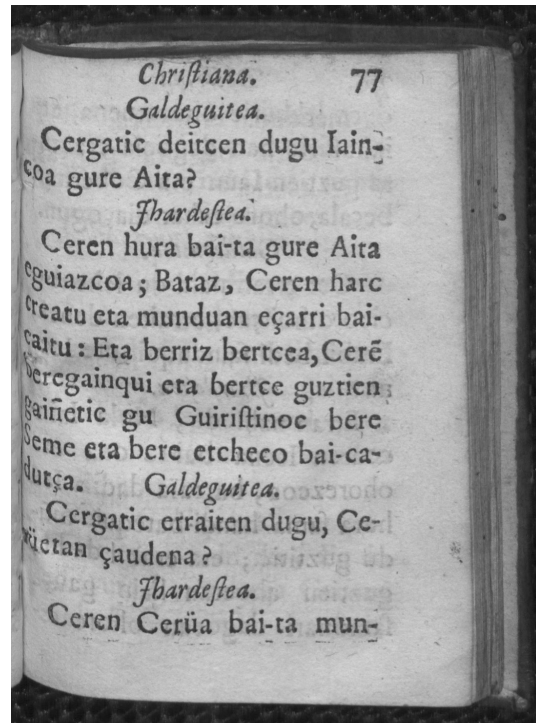 Chriſtiana. 77
Galdeguitea.
Cergatic deitcen dugu Iain-
coa gure Aita?
Jhardeſtea.
Ceren hura bai-ta gure Aita
eguiazcoa; Bataz, Ceren harc
creatu eta munduan eçarri bai-
caitu: Eta berriz bertcea, Cerē
beregainqui eta bertce guztien
gaiñetic gu Guiriſtinoc bere
Seme eta bere etcheco bai-ca-
dutça. Galdeguitea.
Cergatic erraiten dugu, Ce-
rüetan çaudena?
Jhardeſtea.
Ceren Cerüa bai-ta mun-